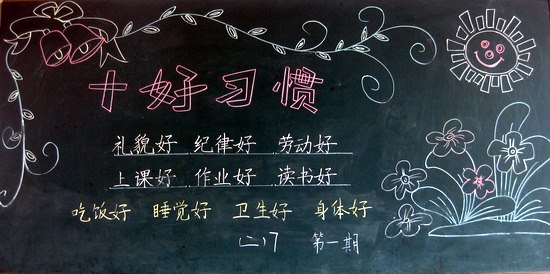 十好习惯
礼貌好 纪律好 劳动好
上课好 作业好 读书好
吃饭好 睡觉好 卫生好 身体好
(二)7 第一期